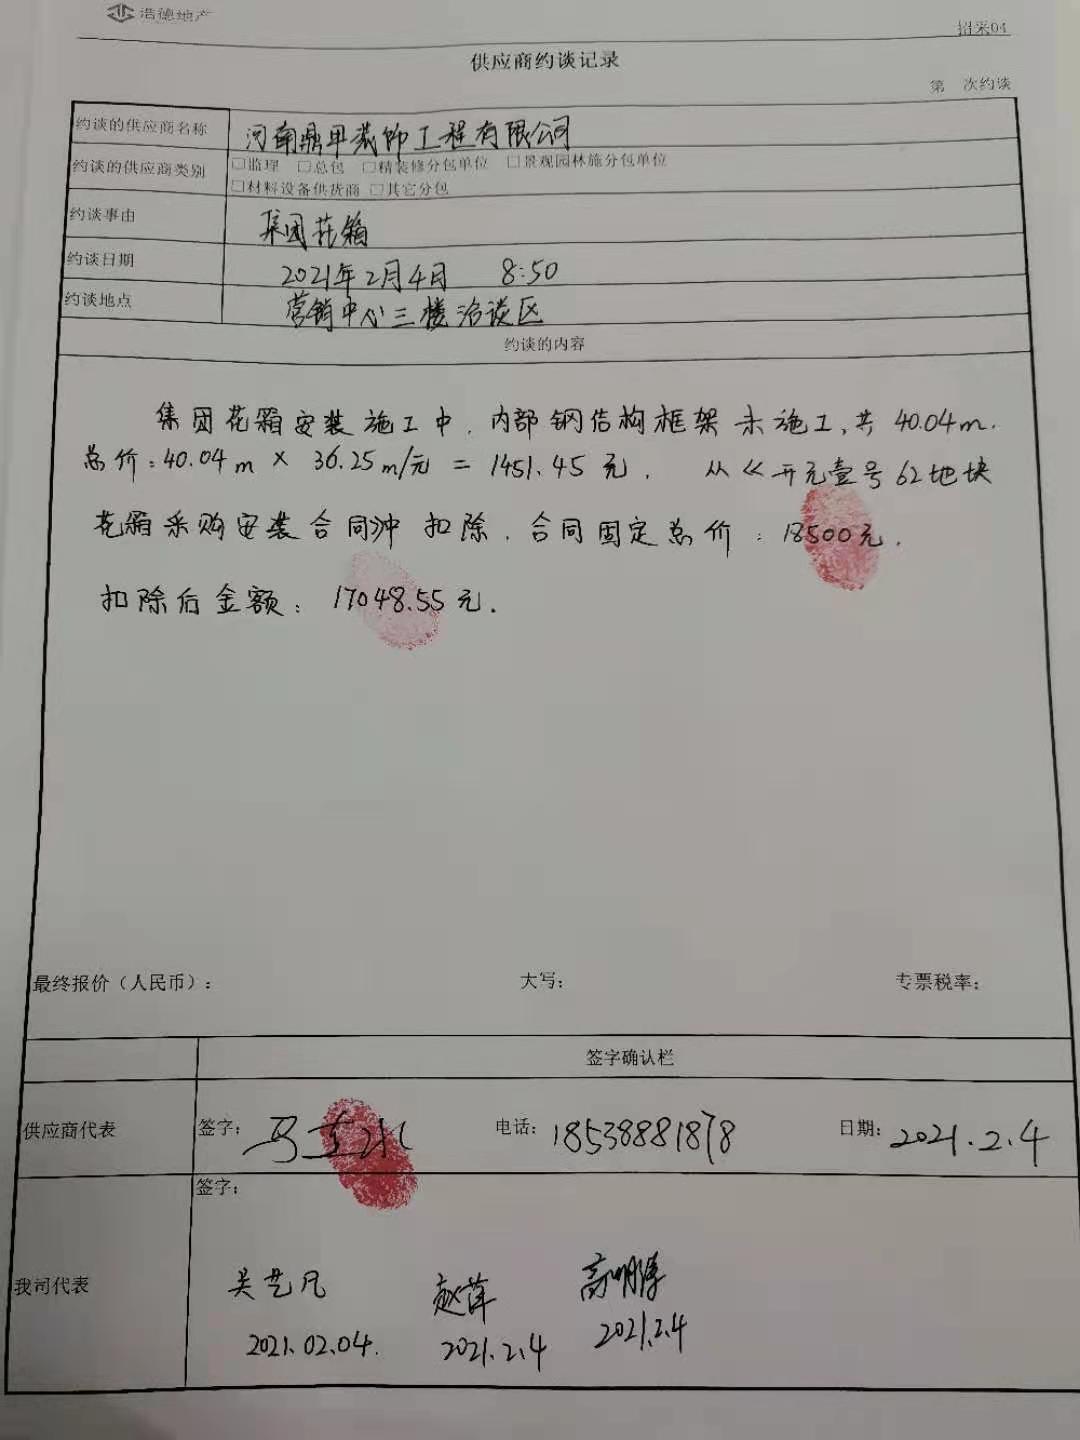 浩德地产
招采04
供应商约谈记录
第 次约谈
约谈的供应商名称 河南鼎甲装饰工程有限公司
约谈的供应商类别 □监理 □总包 □精装修分包单位 □景观园林施分包单位
□材料设备供货商 □其它分包
约谈事由 集团花箱
约谈日期 2021年2月4日 8:50
约谈地点 营销中心三楼洽谈区
约谈的内容
集团花箱安装施工中,内部钢结构框架未施工,共40.04m.
总价:40.04m × 36.25m/元 = 1451.45元, 从《开元壹号62地块
花箱采购安装合同冲 扣除,合同固定总价:18500元,
扣除后金额:17048.55元.
最终报价(人民币): 大写: 专票税率:
签字确认栏
供应商代表 签字: 马 电话:18538881878 日期:2021.2.4
签字:
我司代表 吴艺凡 赵萍 高明
2021.02.04. 2021.2.4 2021.2.4